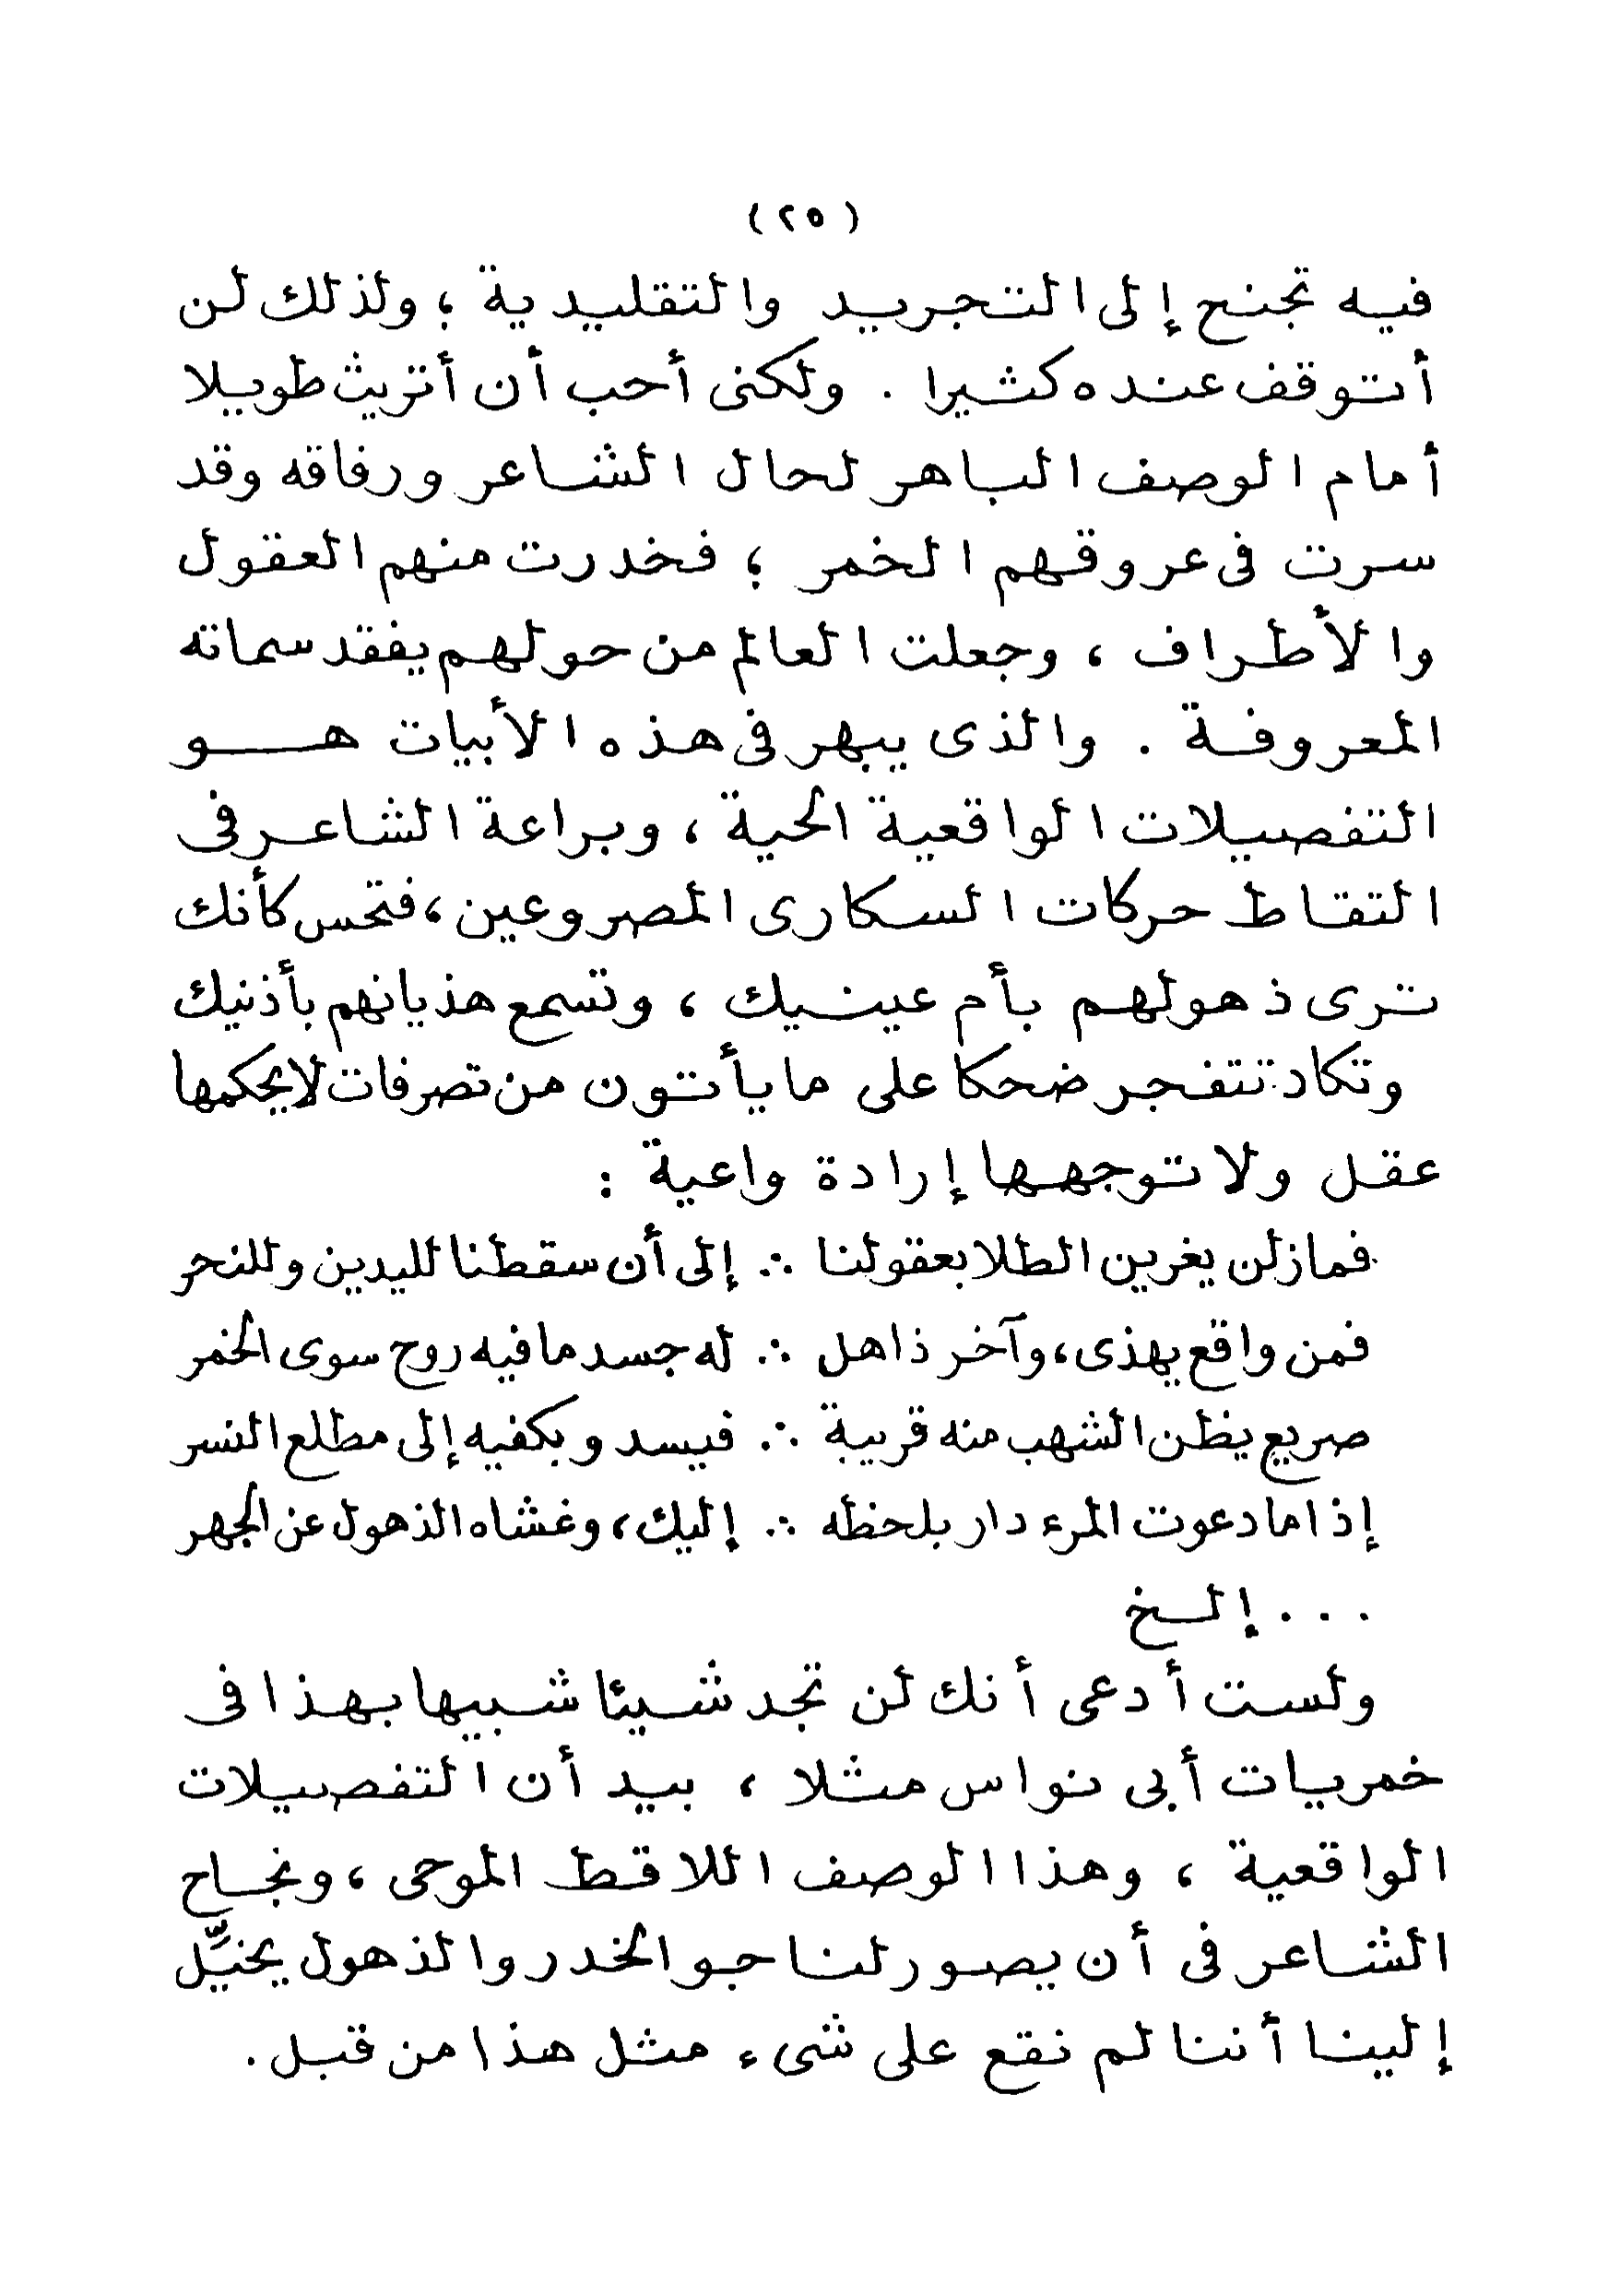 (٢٥)
فيه تجنح إلى التجريد والتقليدية ؛ ولذلك لن
أتوقف عنده كثيرا . ولكنى أحب أن أتريث طويلا
أمام الوصف الباهر لحال الشاعر ورفاقه وقد
سرت فى عروقهم الخمر ؛ فخدرت منهم العقول
والأطراف ، وجعلت العالم من حولهم يفقد سماته
المعروفة . والذى يبهر فى هذه الأبيات هو
التفصيلات الواقعية الحية ، وبراعة الشاعر فى
التقاط حركات السكارى المصروعين ، فتحس كأنك
ترى ذهولهم بأم عينيك ، وتسمع هذيانهم بأذنيك
وتكاد تتفجر ضحكا على ما يأتون من تصرفات لا يحكمها
عقل ولا توجهها إرادة واعية :
فمازلن يغرين الطلا بعقولنا ∴ إلى أن سقطنا لليدين وللنحر
فمن واقع يهذى ، وآخر ذاهل ∴ له جسد ما فيه روح سوى الخمر
صريع يظن الشهب منه قريبة ∴ فيسدو بكفيه إلى مطلع النسر
إذا ما دعوت المرء دار بلحظه ∴ إليك ، وغشاه الذهول عن الجهر
... إلخ
ولست أدعى أنك لن تجد شيئا شبيها بهذا فى
خمريات أبى نواس مثلا ، بيد أن التفصيلات
الواقعية ، وهذا الوصف اللاقط الموحى ، ونجاح
الشاعر فى أن يصور لنا جو الخدر والذهول يخيَّل
إلينا أننا لم نقع على شىء مثل هذا من قبل .